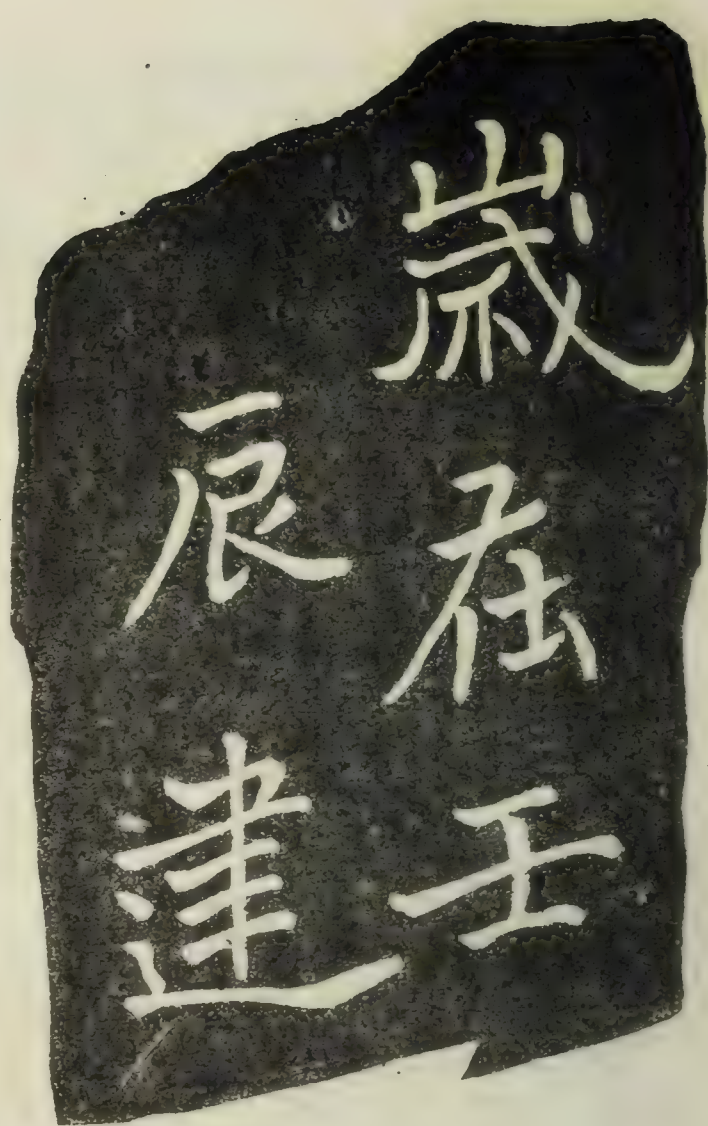 歲在壬
辰建